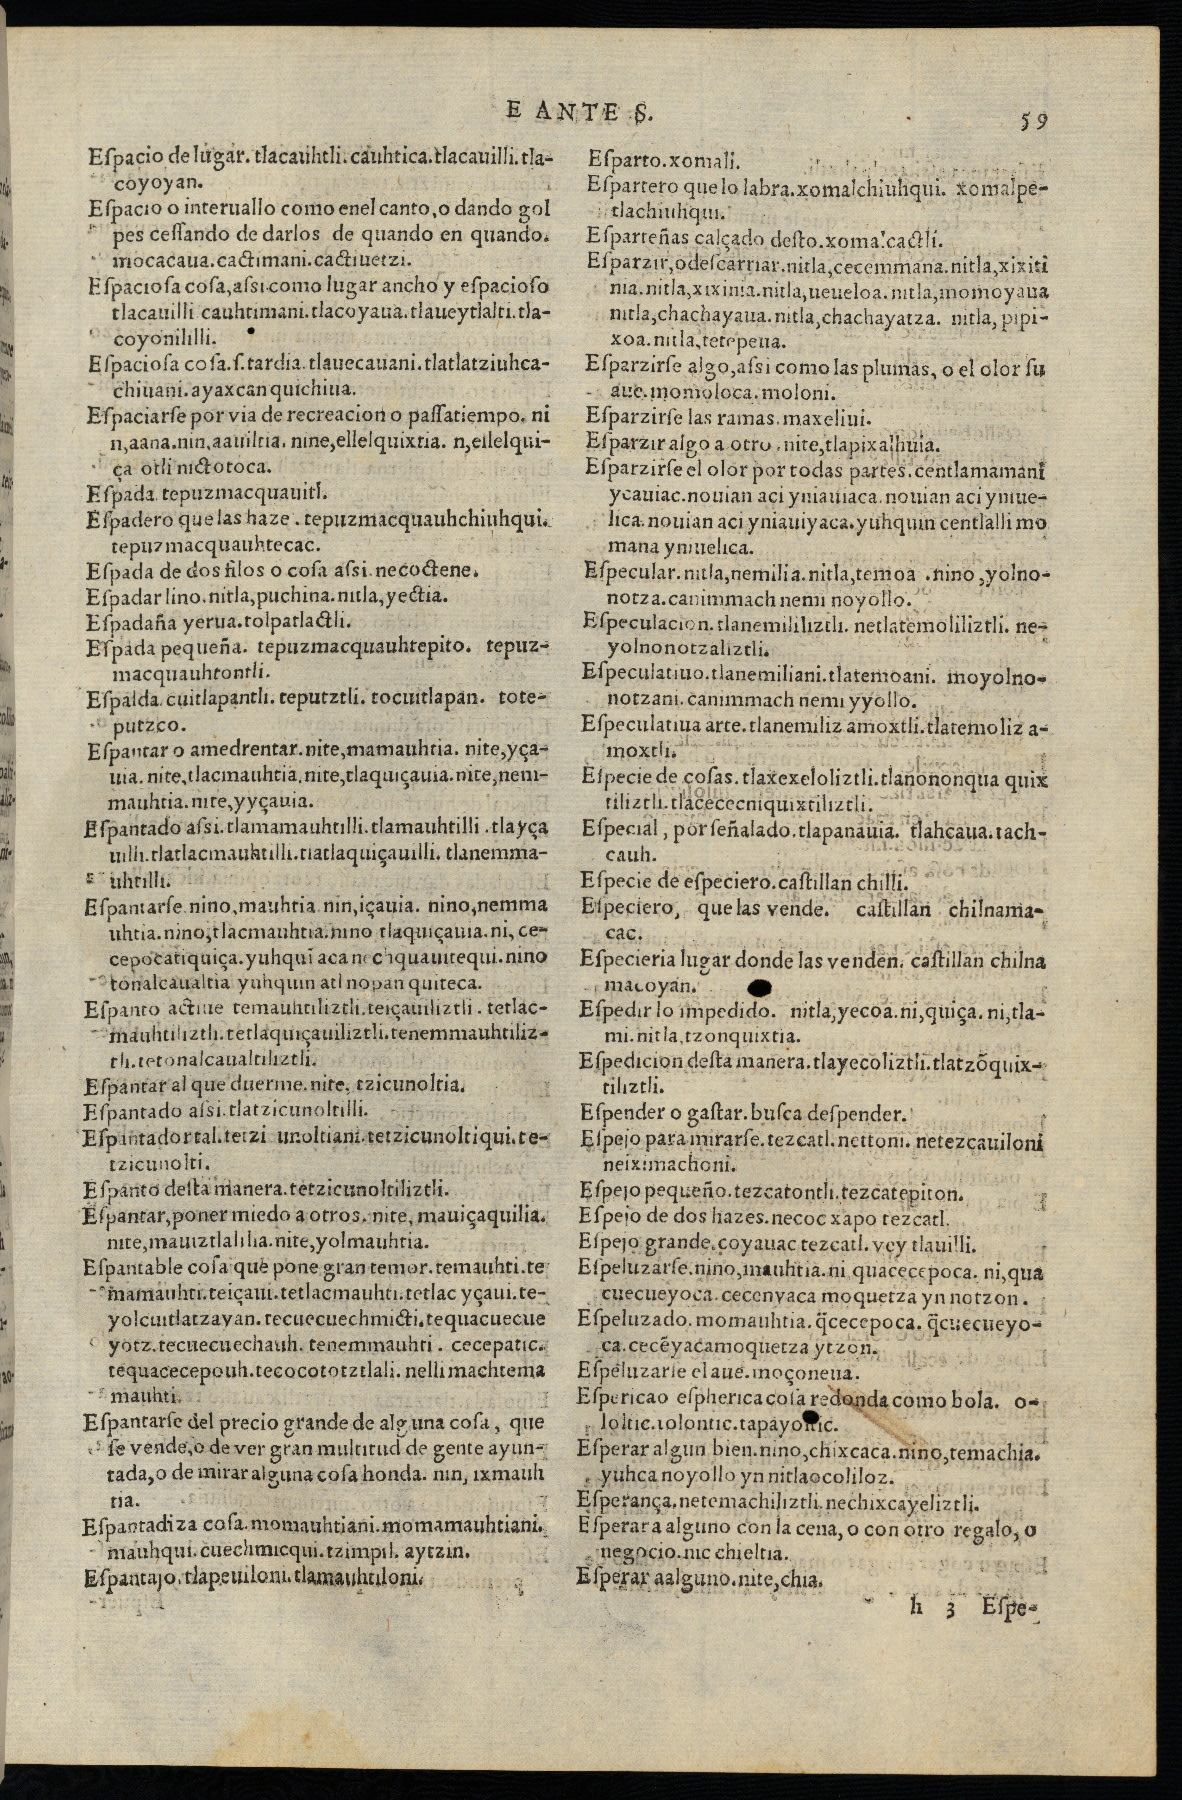 E ANTE S.
59
Espacio de lugar. tlacauhtli. cauhtica. tlacauilli. tla-
coyoyan.
Espacio o interuallo como enel canto, o dando gol
pes cessando de darlos de quando en quando.
mocacaua. cactimani. cactiuetzi.
Espaciosa cosa, assi como lugar ancho y espacioso
tlacauilli cauhtimani. tlacoyaua. tlaueytlalti. tla-
coyonililli.
Espaciosa cosa. s. tardia. tlauecauani. tlatlatziuhca-
chiuani. ayaxcan quichiua.
Espaciarse por via de recreacion o passatiempo. ni
n, aana. nin, aauiltia. nine, ellelquixtia. n, ellelqui-
ça otli nictotoca.
Espada. tepuzmacquauitl.
Espadero que las haze. tepuzmacquauhchiuhqui.
tepuzmacquauhtecac.
Espada de dos filos o cosa assi. necoctene.
Espadar lino. nitla, puchina. nitla, yectia.
Espadaña yerua. tolpatlactli.
Espada pequeña. tepuzmacquauhtepito. tepuz-
macquauhtontli.
Espalda. cuitlapantli. teputztli. tocuitlapan. tote-
putzco.
Espantar o amedrentar. nite, mamauhtia. nite, yça-
uia. nite, tlacmauhtia, nite, tlaquiçauia. nite, nem-
mauhtia. nite, yyçauia.
Espantado assi. tlamamauhtilli. tlamauhtilli. tlayça
uilli. tlatlacmauhtilli. tlatlaquiçauilli. tlanemma-
uhtilli.
Espantarse. nino, mauhtia. nin, içauia. nino, nemma
uhtia. nino, tlacmauhtia. nino tlaquiçauia. ni, ce-
cepocatiquiça. yuhquĩ aca nechquauitequi. nino
tonalcaualtia yuhquin atl nopan quiteca.
Espanto actiue temauhtiliztli. teiçauiliztli. tetlac-
mauhtiliztli. tetlaquiçauiliztli. tenemmauhtiliz-
tli. tetonalcaualtiliztli.
Espantar al que duerme. nite, tzicunoltia.
Espantado assi. tlatzicunoltilli.
Espantador tal. tetzi unoltiani. tetzicunoltiqui. te-
tzicunolti.
Espanto desta manera. tetzicunoltiliztli.
Espantar, poner miedo a otros. nite, mauiçaquilia.
nite, mauiztlalilia. nite, yolmauhtia.
Espantable cosa que pone gran temor. temauhti. te
mamauhti. teiçaui. tetlacmauhti. tetlac yçaui. te-
yolcuitlatzayan. tecuecuechmicti. tequacuecue
yotz. tecuecuechauh. tenemmauhti. cecepatic.
tequacecepouh. tecocototztlali. nelli machtema
mauhti.
Espantarse del precio grande de alguna cosa, que
se vende, o de ver gran multitud de gente ayun-
tada, o de mirar alguna cosa honda. nin, ixmauh
tia.
Espantadiza cosa. momauhtiani. momamauhtiani.
mauhqui. cuechmicqui. tzimpil. aytzin.
Espantajo. tlapeuiloni. tlamauhtiloni.
Esparto. xomali.
Espartero que lo labra. xomalchiuhqui. xomalpe-
tlachiuhqui.
Esparteñas calçado desto. xomalcactli.
Esparzir, o descarriar. nitla, cecemmana. nitla, xixiti
nia. nitla, xixinia. nitla, ueueloa. nitla, momoyaua
nitla, chachayaua. nitla, chachayatza. nitla, pipi-
xoa. nitla, tetepeua.
Esparzirse algo, assi como las plumas, o el olor su
aue. momoloca. moloni.
Esparzirse las ramas. maxeliui.
Esparzir algo a otro. nite, tlapixalhuia.
Esparzirse el olor por todas partes. centlamamani
ycauiac. nouian aci yniauiaca. nouian aci ynue-
lica. nouian aci yniauiyaca. yuhquin centlalli mo
mana ynuelica.
Especular. nitla, nemilia. nitla, temoa. nino, yolno-
notza. canimmach nemi noyollo.
Especulacion. tlanemililiztli. netlatemoliliztli. ne-
yolnonotzaliztli.
Especulatiuo. tlanemiliani. tlatemoani. moyolno-
notzani. canimmach nemi yyollo.
Especulatiua arte. tlanemiliz amoxtli. tlatemoliz a-
moxtli.
Especie de cosas. tlaxexeloliztli. tlanononqua quix
tiliztli. tlacececniquixtiliztli.
Especial, por señalado. tlapanauia. tlahcaua. tach-
cauh.
Especie de especiero. castillan chilli.
Especiero, que las vende. castillan chilnama-
cac.
Especieria lugar donde las venden. castillan chilna
macoyan.
Espedir lo impedido. nitla, yecoa. ni, quiça. ni, tla-
mi. nitla, tzonquixtia.
Espedicion desta manera. tlayecoliztli. tlatzõquix-
tiliztli.
Espender o gastar. busca despender.
Espejo para mirarse. tezcatl. nettoni. netezcauiloni
neiximachoni.
Espejo pequeño. tezcatontli. tezcatepiton.
Espejo de dos hazes. necoc xapo tezcatl.
Espejo grande. coyauac tezcatl. vey tlauilli.
Espeluzarse. nino, mauhtia. ni quacecepoca. ni, qua
cuecueyoca. cecenyaca moquetza yn notzon.
Espeluzado. momauhtia. q̃cecepoca. q̃cuecueyo-
ca. cecẽyacamoquetza ytzon.
Espeluzarse el aue. moçoneua.
Espericao espherica cosa redonda como bola. o-
loltic. tolontic. tapayontic.
Esperar algun bien. nino, chixcaca. nino, temachia.
yuhca noyollo yn nitlaocoliloz.
Esperança. netemachiliztli. nechixcayeliztli.
Esperar a alguno con la cena, o con otro regalo, o
negocio. nic chieltia.
Esperar aalguno. nite, chia.
h 3 Espe-